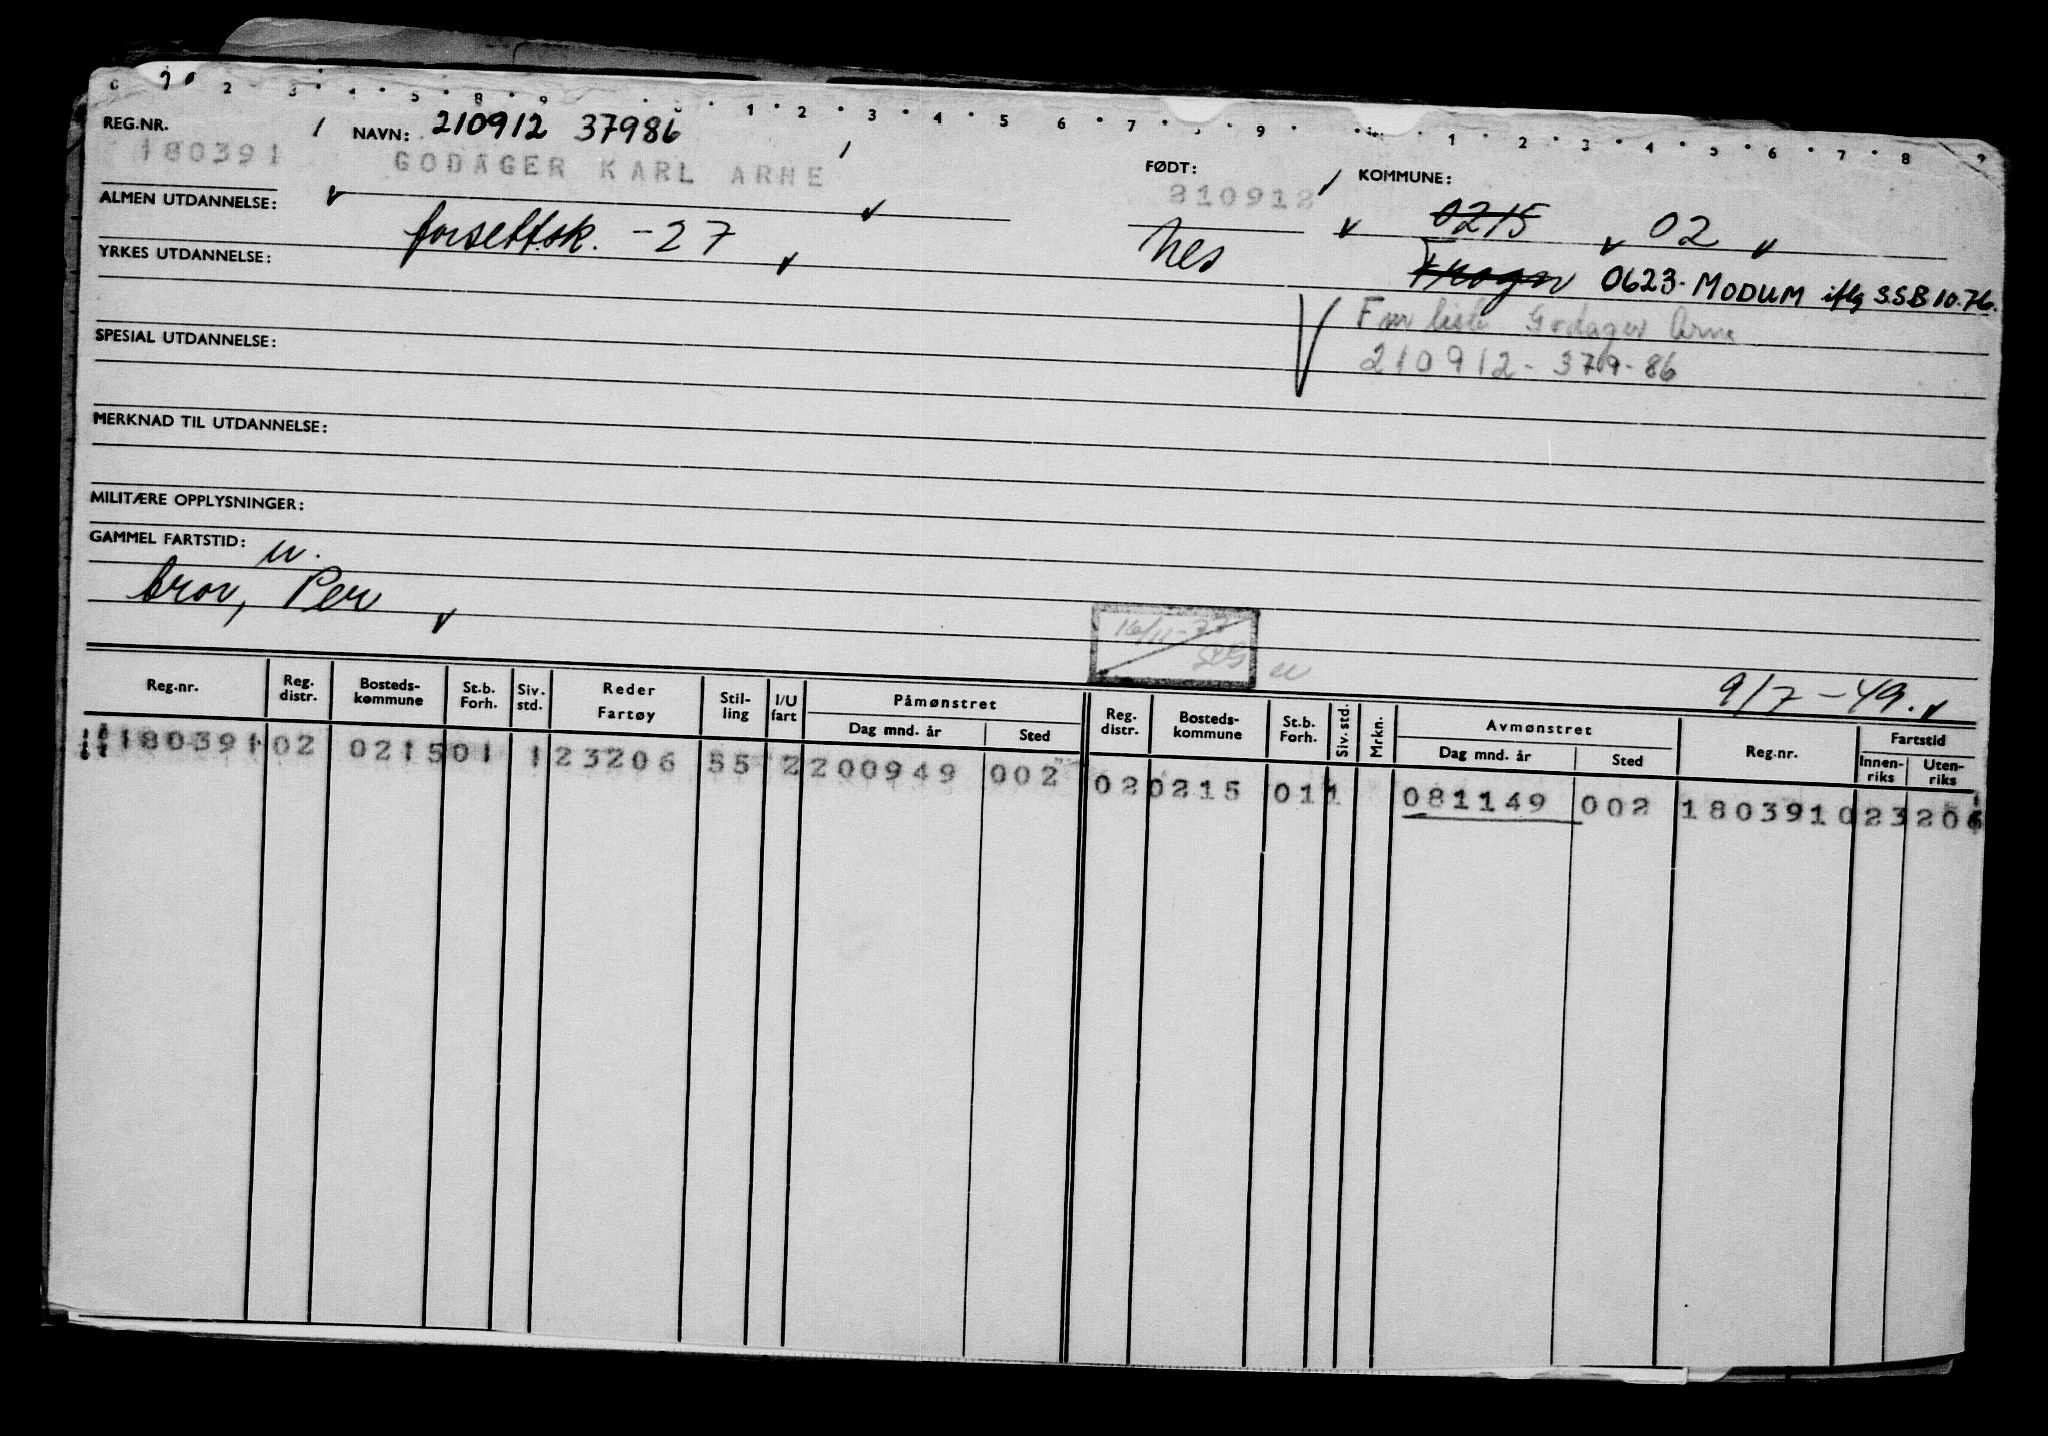 REG.NR. NAVN: 210912 37986
180391 GODAGER KARL ARNE FØDT: 210912 KOMMUNE:
ALMEN UTDANNELSE: forsettsk. -27 Nes 0215 02
YRKES UTDANNELSE: Frogn 0623-MODUM iflg SSB 10.76.
Fnr liste Godager Arne
SPESIAL UTDANNELSE: 210912-379-86
MERKNAD TIL UTDANNELSE:
MILITÆRE OPPLYSNINGER:
GAMMEL FARTSTID: u.
bror, Per
16/11-
9/7-49.
Reg.nr. Reg. distr. Bosteds- kommune St.b. Forh. Siv. std. Reder Fartøy Stil- ling I/U fart Påmønstret Dag mnd. år Sted Reg. distr. Bosteds- kommune St.b. Forh. Siv. std. Mrkn. Avmønstret Dag mnd. år Sted Reg.nr. Fartstid Innen- riks Uten- riks
180391 02 0215 01 1 23206 55 2 200949 002 02 0215 01 1 081149 002 180391 023206